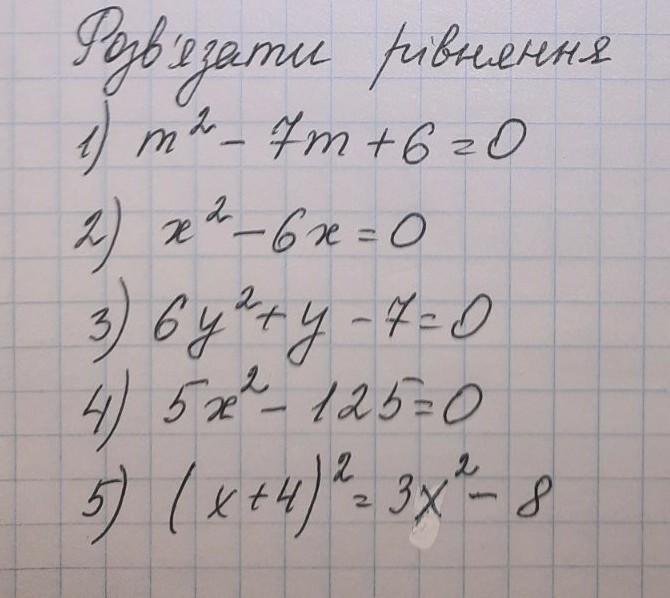 Розв'язати рівнення
1) m² - 7m + 6 = 0
2) x² - 6x = 0
3) 6y² + y - 7 = 0
4) 5x² - 125 = 0
5) (x + 4)² = 3x² - 8